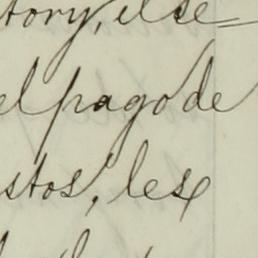 tory, el se=
el pago de
stos, les